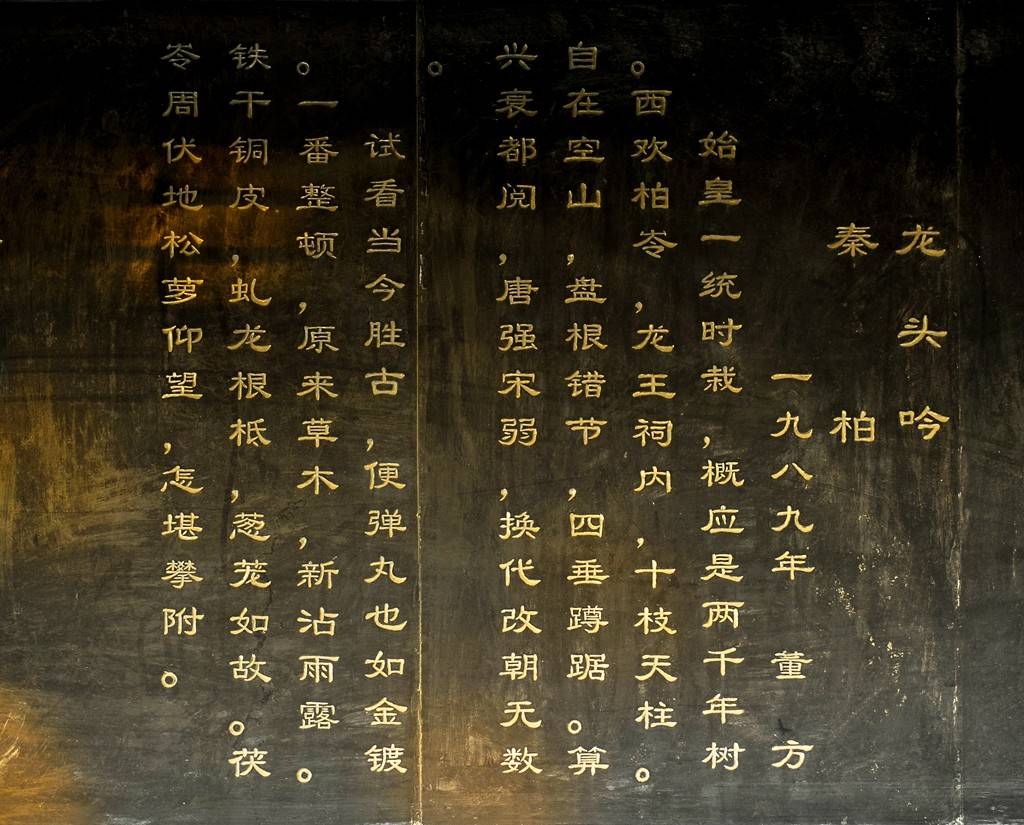 龙头吟
秦柏
一九八九年 董方
始皇一统时栽，概应是两千年树
。西欢柏岺，龙王祠内，十枝天柱。
自在空山，盘根错节，四垂蹲踞。算
兴衰都阅，唐强宋弱，换代改朝无数
。
试看当今胜古，便弹丸也如金镀
。一番整顿，原来草木，新沾雨露。
铁干铜皮，虬龙根柢，葱茏如故。茯
岺周伏地松萝仰望，怎堪攀附。